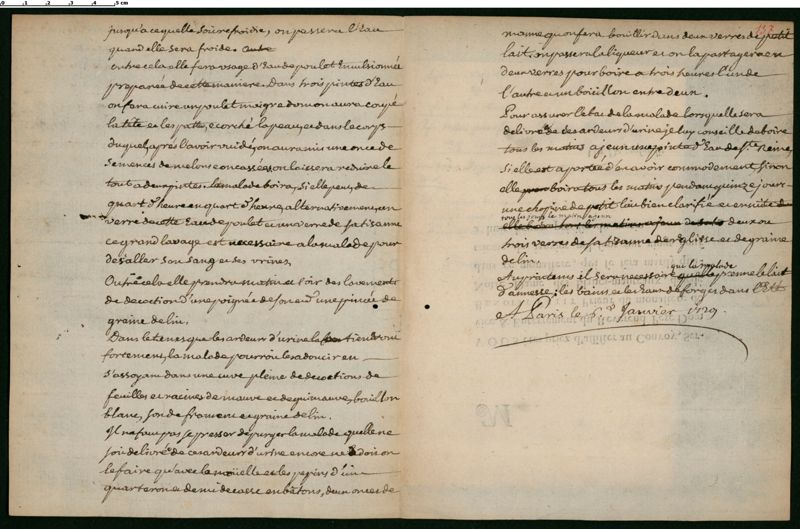 jusqu'a ce quelle soit refroidie, on passera l'Eau
quand elle sera froide.
outre cela elle fera usage d'Eau de poulet Emulsionnée
preparée de cette maniere. Dans trois pintes d'Eau
on fera cuire un poulet maigre dont on aura coupé
la tête et les pattes, ecorché la peau, et dans le corps
duquel, aprés l'avoir vuidé, on aura mis une once de
semences de melons concassées, on laissera reduire le
tout a deux pintes. la malade boira, si elle peut, de
quart d'heure en quart d'heure, alternativement, un
verre de cette Eau de poulet et un verre de sa tisanne
ce grand lavage est necessaire a la malade pour
désaller son sang et ses urines.
Outre cela elle prendra matin et soir des lavements
de decoction d'une poignée de son et d'une pincée de
graine de lin.
Dans le tems que les ardeurs d'urine la tiendront
fortement, la malade pourroit les adoucir en
s'assoyant dans une cuve pleine de decoctions de
feuilles et racines de mauve et de guimauve, bouillon
blanc, son de froment et graine de lin.
Il ne faut pas se presser de purger la malade quelle ne
soit delivrée de ces ardeurs d'urine encore ne doit on
le faire qu'avec la moüelle et les pepins d'un
quarteron et demi de casse en bâtons, deux onces de
manne qu'on fera boüillir dans deux verres de petit
lait. on passera la liqueur et on la partagera en
deux verres pour boire a trois heures l'un de
l'autre et un boüillon entre deux.
Pour assurer l'etat de la malade lorsqu'elle sera
delivrée de ces ardeurs d'urine, je luy conseille de boire
tous les matins a jeun une pinte d'Eau de Ste Reine,
si elle est a portée d'en avoir commodement, sinon
elle boira tous les matins pendant quinze jours
une chopine de petit lait bien clarifié et ensuite
tous les jours le matin a jeun
deux ou
trois verres de sa tisanne de reglisse et de graine
de lin.
Au printems il sera necessaire que la malade prenne le lait
d'annesse; les bains et les Eaux de forges dans l'Eté
A Paris le 6.e Janvier 1729.